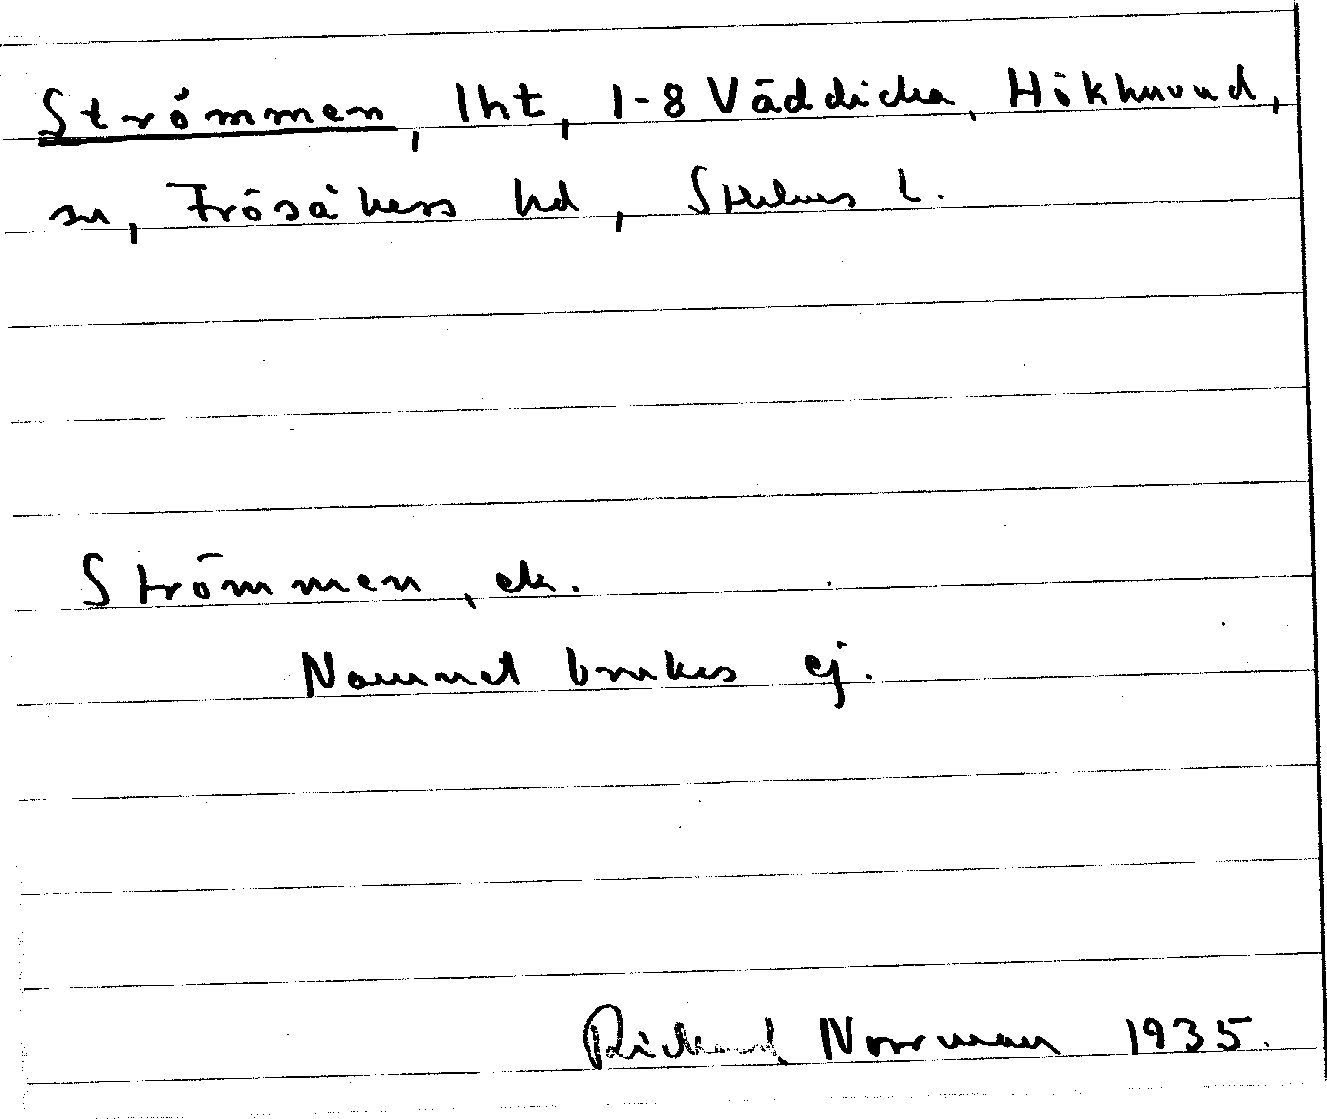 Strömmen, lht, 1-8 Väddicka, Hökhuvud,
sn, Frösåkers hd, Sthlms l.
Strömmen, ek.
Namnet brukes ej.
Rickard Norrman 1935.